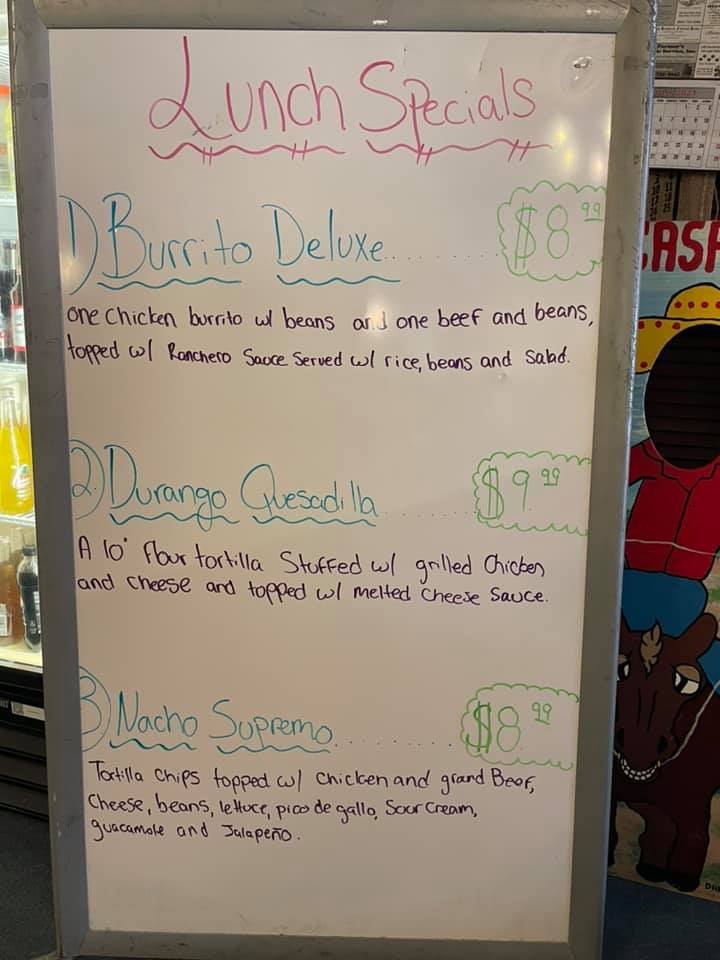 Lunch Specials
1) Burrito Deluxe........ $8 99
one chicken burrito w/ beans and one beef and beans,
topped w/ Ranchero Sauce Served w/ rice, beans and Salad.
2. Durango Quesadilla........ $9 99
A 10" flour tortilla Stuffed w/ grilled Chicken
and cheese and topped w/ melted Cheese Sauce.
3) Nacho Supremo........ $8 99
Tortilla chips topped w/ Chicken and grand Beef,
Cheese, beans, lettuce, pico de gallo, Sour Cream,
guacamole and Jalapeño.